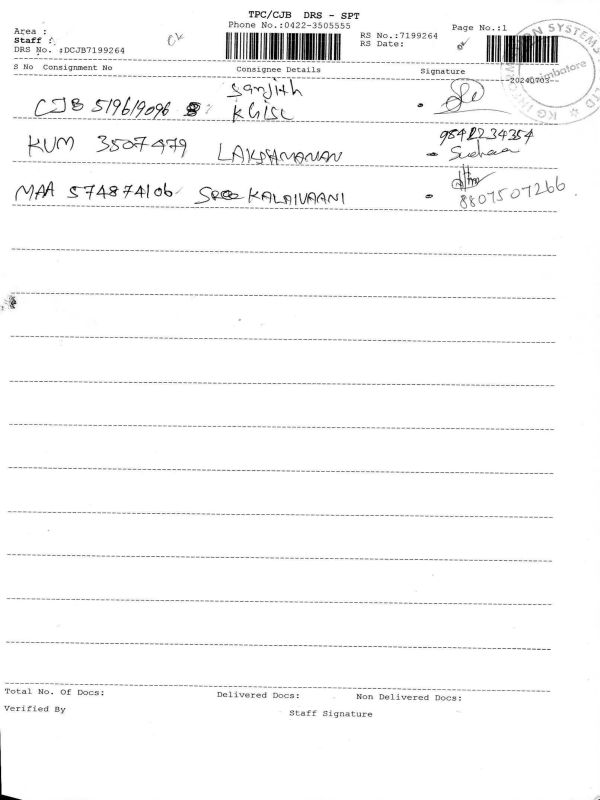 TPC/CJB DRS - SPT
Phone No.:0422-3505555
Page No.:1
Area :
Staff :
DRS No. :DCJB7199264
RS No.:7199264
RS Date:
20240703
S No Consignment No Consignee Details Signature
CJB 519619096 Sanjith
KGISL
KUM 3507479 LAKSHAMANAN
9842234354
MAA 574874106 SREE KALAIVAANI
8807507266
Total No. Of Docs: Delivered Docs: Non Delivered Docs:
Verified By Staff Signature